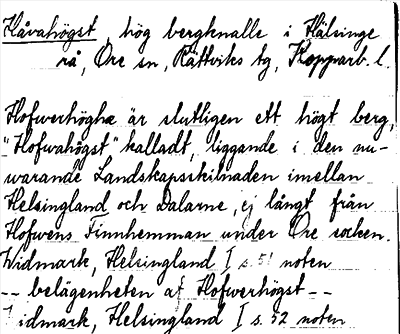 Håvahögst, hög bergknalle i Hälsinge
rå, Ore sn, Rättviks tg, Kopparb. l.
Hofwerhöghæ är slutligen ett högt berg,
"Hofwahögst" kalladt, liggande i den nu-
warande Landskapsskilnaden imellan
Helsingland och Dalarne, ej långt från
Hofwens Finnhemman under Ore socken.
Widmark, Helsingland I s. 51 noten
-- belägenheten af Hofwerhögst --
idmark, Helsingland I s. 52 noten